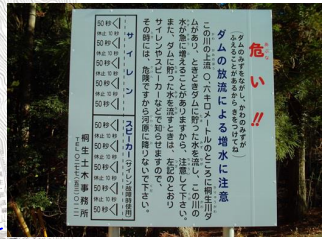 危い!!
ダムのみずをながし、かわのみずが
(ふえることがあるからきをつけてね)
ダムの放流による増水に注意
この川の上流〇、六キロメートルのところに桐生川ダ
ムがあり、ときどきダムに貯った水を流し、この川の
水が急に増えることがありますから、注意して下さい。
また、ダムに貯った水を流すときは、左記のとおり
サイレンやスピーカーなどで知らせますので、
その時には、危険ですから河原に降りないで下さい。
サイレン
50秒
休止10秒
50秒
休止10秒
50秒
休止10秒
50秒
休止10秒
50秒
スピーカー(サイレン故障時使用)
50秒
休止10秒
50秒
休止10秒
50秒
休止10秒
50秒
休止10秒
50秒
桐生土木事務所